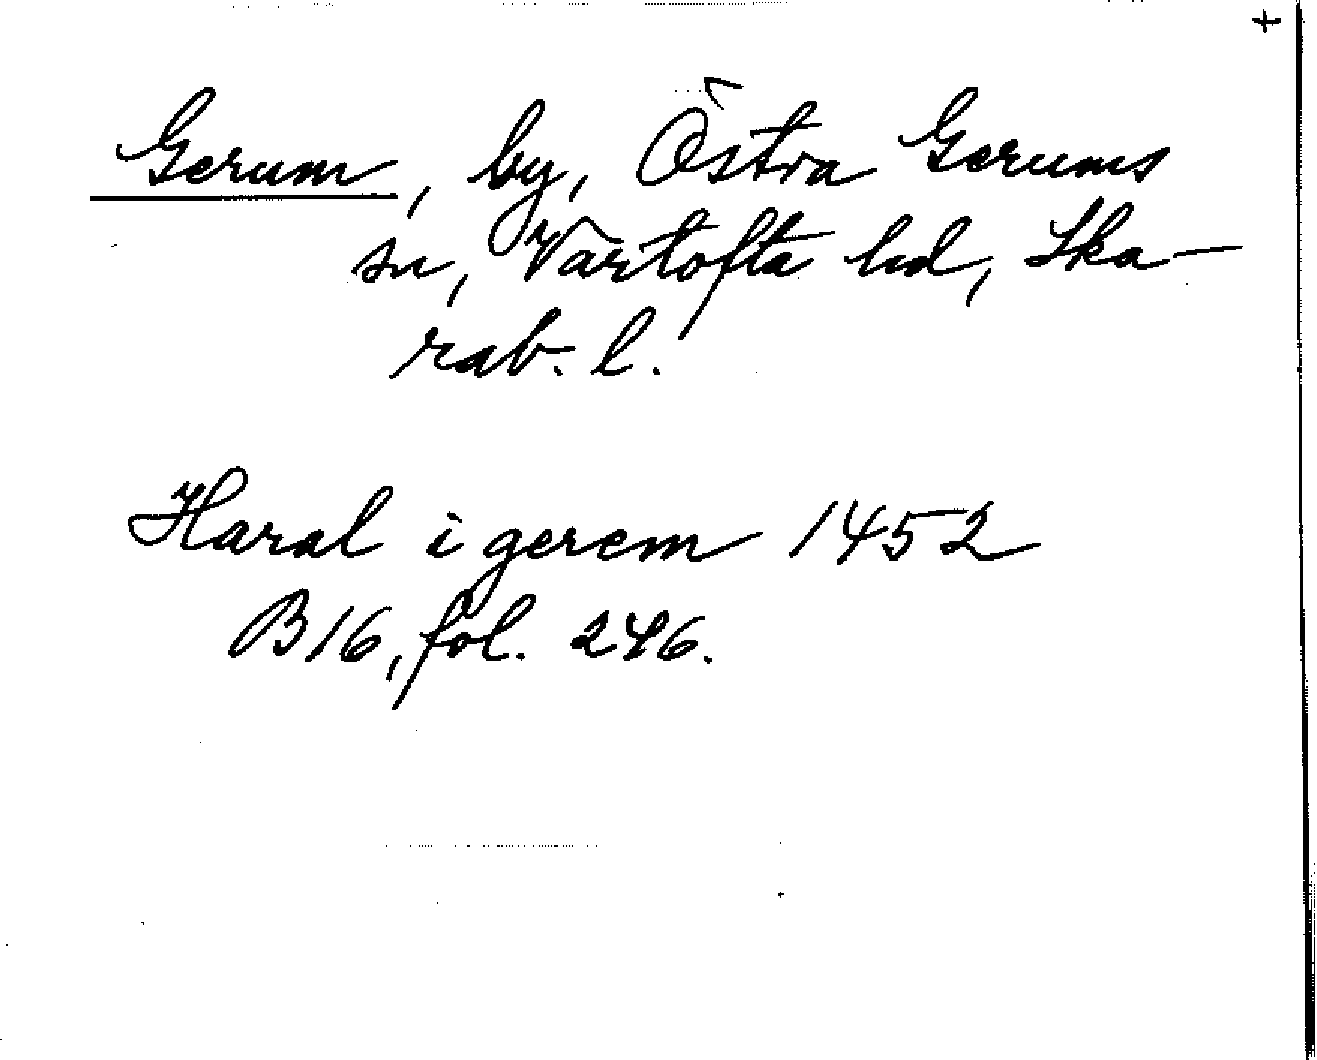 +
Gerum, by, Östra Gerums
sn, Vartofta hd, Ska-
rab. l.
Haral i gerem 1452
B16, fol. 246.